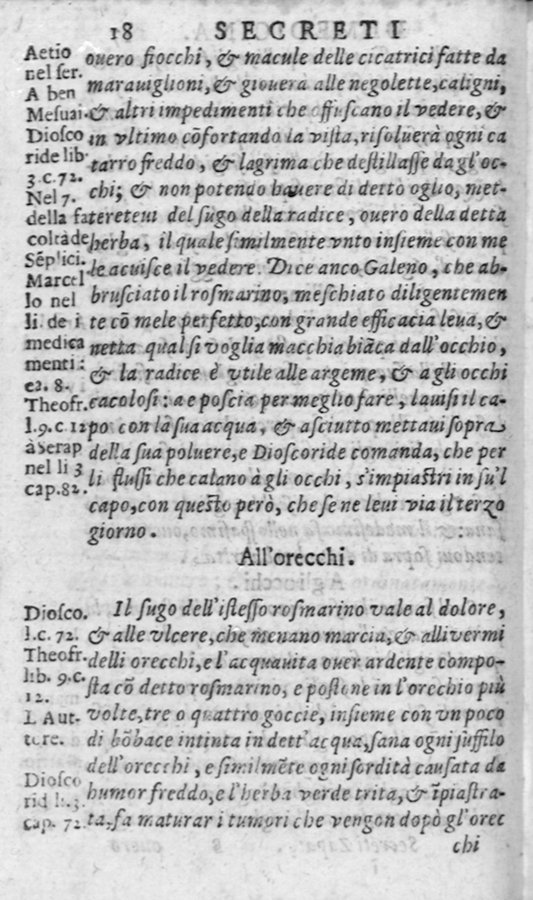 18 SECRETI
Aetio
nel ser.
A ben
Mesuai.
Diosco
ride lib.
3.c.72.
Nel 7.
della fa
coltà de
Sẽplici.
Marcel
lo nel
li. de i
medica
menti:
ca. 8.
Theofr.
l.9.c.12
à Serap
nel li 3
cap.82.
ouero fiocchi, & macule delle cicatrici fatte da
marauiglioni, & giouerà alle negolette, caligni,
& altri impedimenti che offuscano il vedere, &
in vltimo cõfortando la vista, risoluerà ogni ca
tarro freddo, & lagrima che destillasse da gl'oc-
chi; & non potendo hauere di detto oglio, met-
tereteui del sugo della radice, ouero della detta
herba, il quale similmente vnto insieme con me
le acuisce il vedere. Dice anco Galeno, che ab-
brusciato il rosmarino, meschiato diligentemen
te cõ mele perfetto, con grande efficacia leua, &
netta qual si voglia macchia biãca dall'occhio,
& la radice è vtile alle argeme, & a gli occhi
cacolosi: a e poscia per meglio fare, lauisi il ca-
po con la sua acqua, & asciutto mettaui sopra
della sua poluere, e Dioscoride comanda, che per
li flussi che calano à gli occhi, s'impiastri in su'l
capo, con questo però, che se ne leui via il terzo
giorno.
All'orecchi.
Diosco.
l.c. 72.
Theofr.
lib. 9.c.
12.
L Aut-
tore.
Diosco
rid li.3.
cap. 72.
Il sugo dell'istesso rosmarino vale al dolore,
& alle vlcere, che menano marcia, & alli vermi
delli orecchi, e l'acquauita ouer ardente compo-
sta cõ detto rosmarino, e postone in l'orechio più
volte, tre o quattro goccie, insieme con vn poco
di bõbace intinta in dett'acqua, sana ogni suffilo
dell'orecchi, e similmẽte ogni sordità causata da
humor freddo, e l'herba verde trita, & ĩpiastra-
ta, fa maturar i tumori che vengon dopò gl'orec
chi